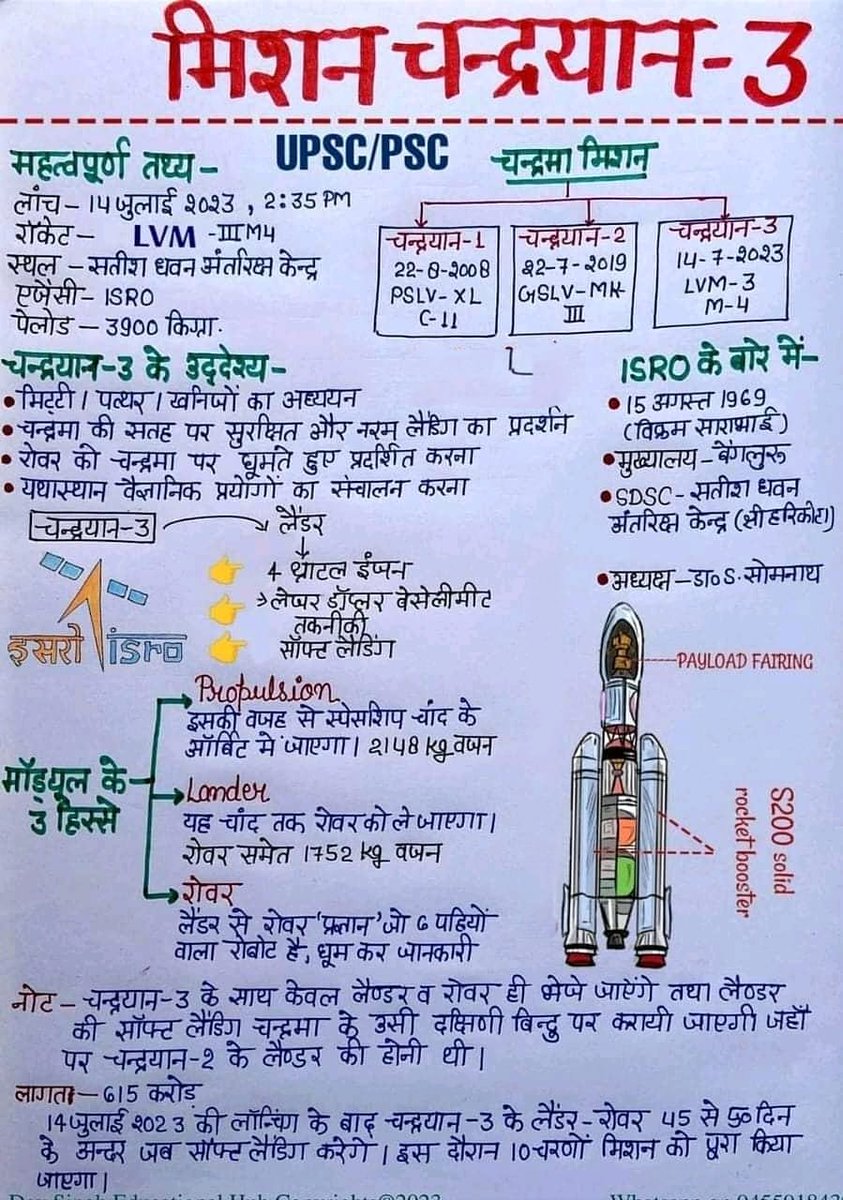 मिशन चन्द्रयान-3
UPSC/PSC
महत्वपूर्ण तथ्य-
लांच - 14 जुलाई 2023, 2:35 PM
रॉकेट - LVM-III M4
स्थल - सतीश धवन अंतरिक्ष केन्द्र
एजेंसी - ISRO
पेलोड - 3900 किग्रा.
चन्द्रमा मिशन
चन्द्रयान-1
22-8-2008
PSLV-XL
C-11
चन्द्रयान-2
22-7-2019
GSLV-MK-
III
चन्द्रयान-3
14-7-2023
LVM-3
M-4
चन्द्रयान-3 के उद्देश्य-
• मिट्टी। पत्थर। खनिजों का अध्ययन
• चन्द्रमा की सतह पर सुरक्षित और नरम लैंडिंग का प्रदर्शन
• रोवर को चन्द्रमा पर घूमते हुए प्रदर्शित करना
• यथास्थान वैज्ञानिक प्रयोगों का संचालन करना
ISRO के बारे में-
• 15 अगस्त 1969
(विक्रम साराभाई)
• मुख्यालय - बेंगलुरू
• SDSC - सतीश धवन
अंतरिक्ष केन्द्र (श्रीहरिकोटा)
• अध्यक्ष - डा० S. सोमनाथ
चन्द्रयान-3
लैंडर
4 थ्रोटल इंजन
लेजर डॉप्लर वेसेलीमीट
तकनीकी
सॉफ्ट लैंडिंग
इसरो isro
मॉड्यूल के
3 हिस्से
Propulsion
इसकी वजह से स्पेसशिप चांद के
ऑर्बिट में जाएगा। 2148 kg वजन
Lander
यह चांद तक रोवर को ले जाएगा।
रोवर समेत 1752 kg वजन
रोवर
लैंडर से रोवर 'प्रज्ञान' जो 6 पहियों
वाला रोबोट है, घूम कर जानकारी
PAYLOAD FAIRING
S200 solid
rocket booster
नोट - चन्द्रयान-3 के साथ केवल लैण्डर व रोवर ही भेजे जाएंगे तथा लैण्डर
की सॉफ्ट लैंडिंग चन्द्रमा के उसी दक्षिणी बिन्दु पर करायी जाएगी जहाँ
पर चन्द्रयान-2 के लैण्डर की होनी थी।
लागत - 615 करोड़
14 जुलाई 2023 की लॉन्चिंग के बाद चन्द्रयान-3 के लैंडर-रोवर 45 से 50 दिन
के अन्दर जब सॉफ्ट लैंडिंग करेंगे। इस दौरान 10 चरणों मिशन को पूरा किया
जाएगा।